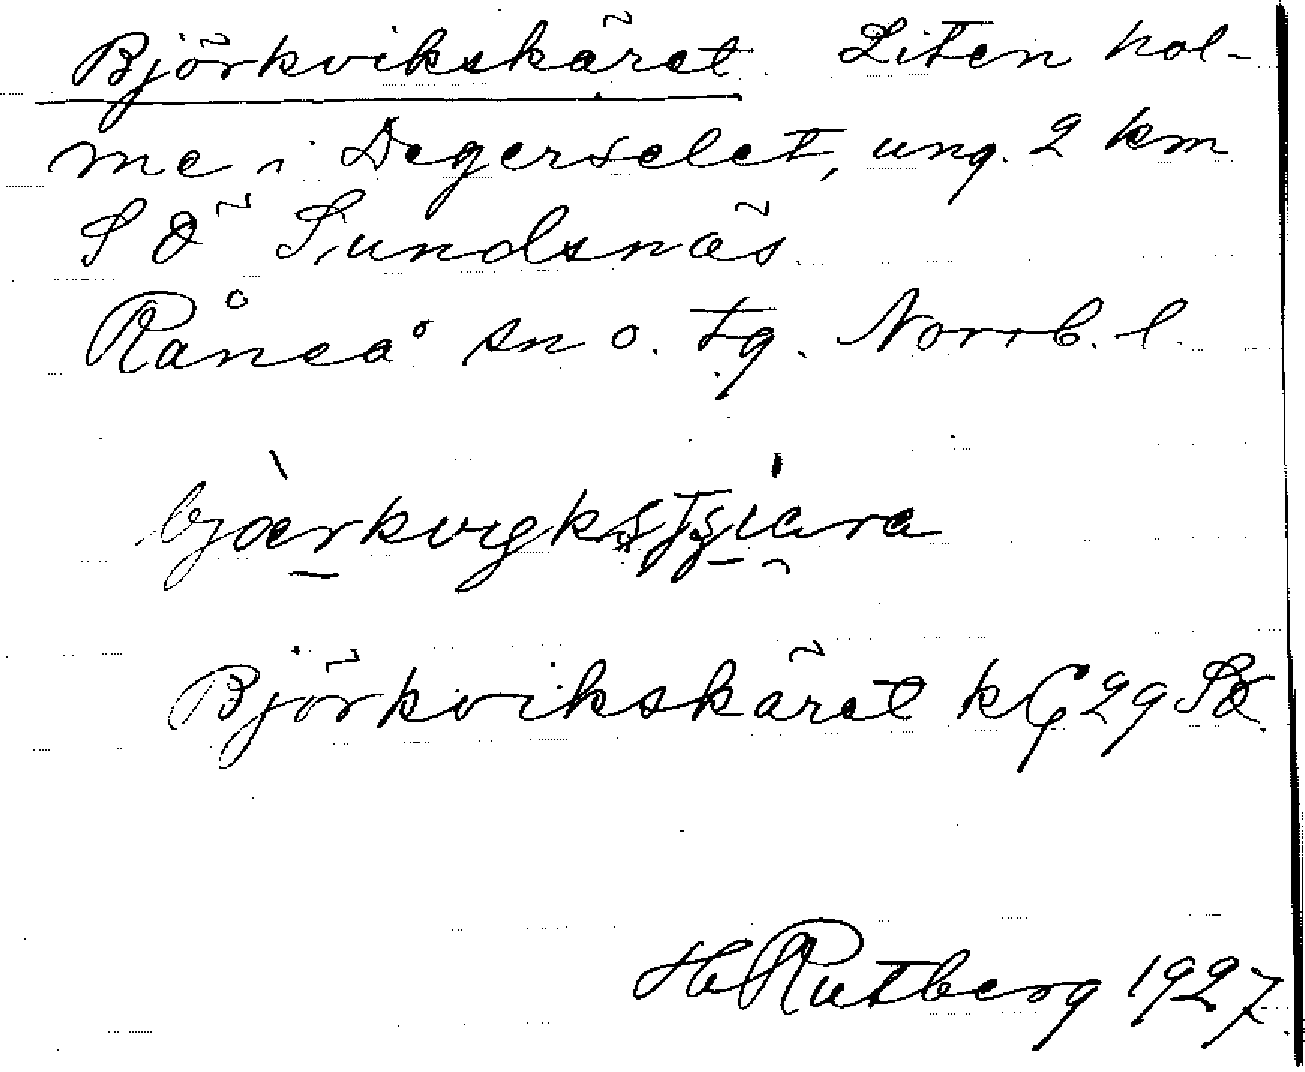 Björkvikskäret Liten hol-
me i Degerselet, ung. 2 km
S Ö Sundsnäs
Råneå sn o. tg. Norrb. l.
Björkvikskäret kG 29 SÖ
H Rutberg 1927